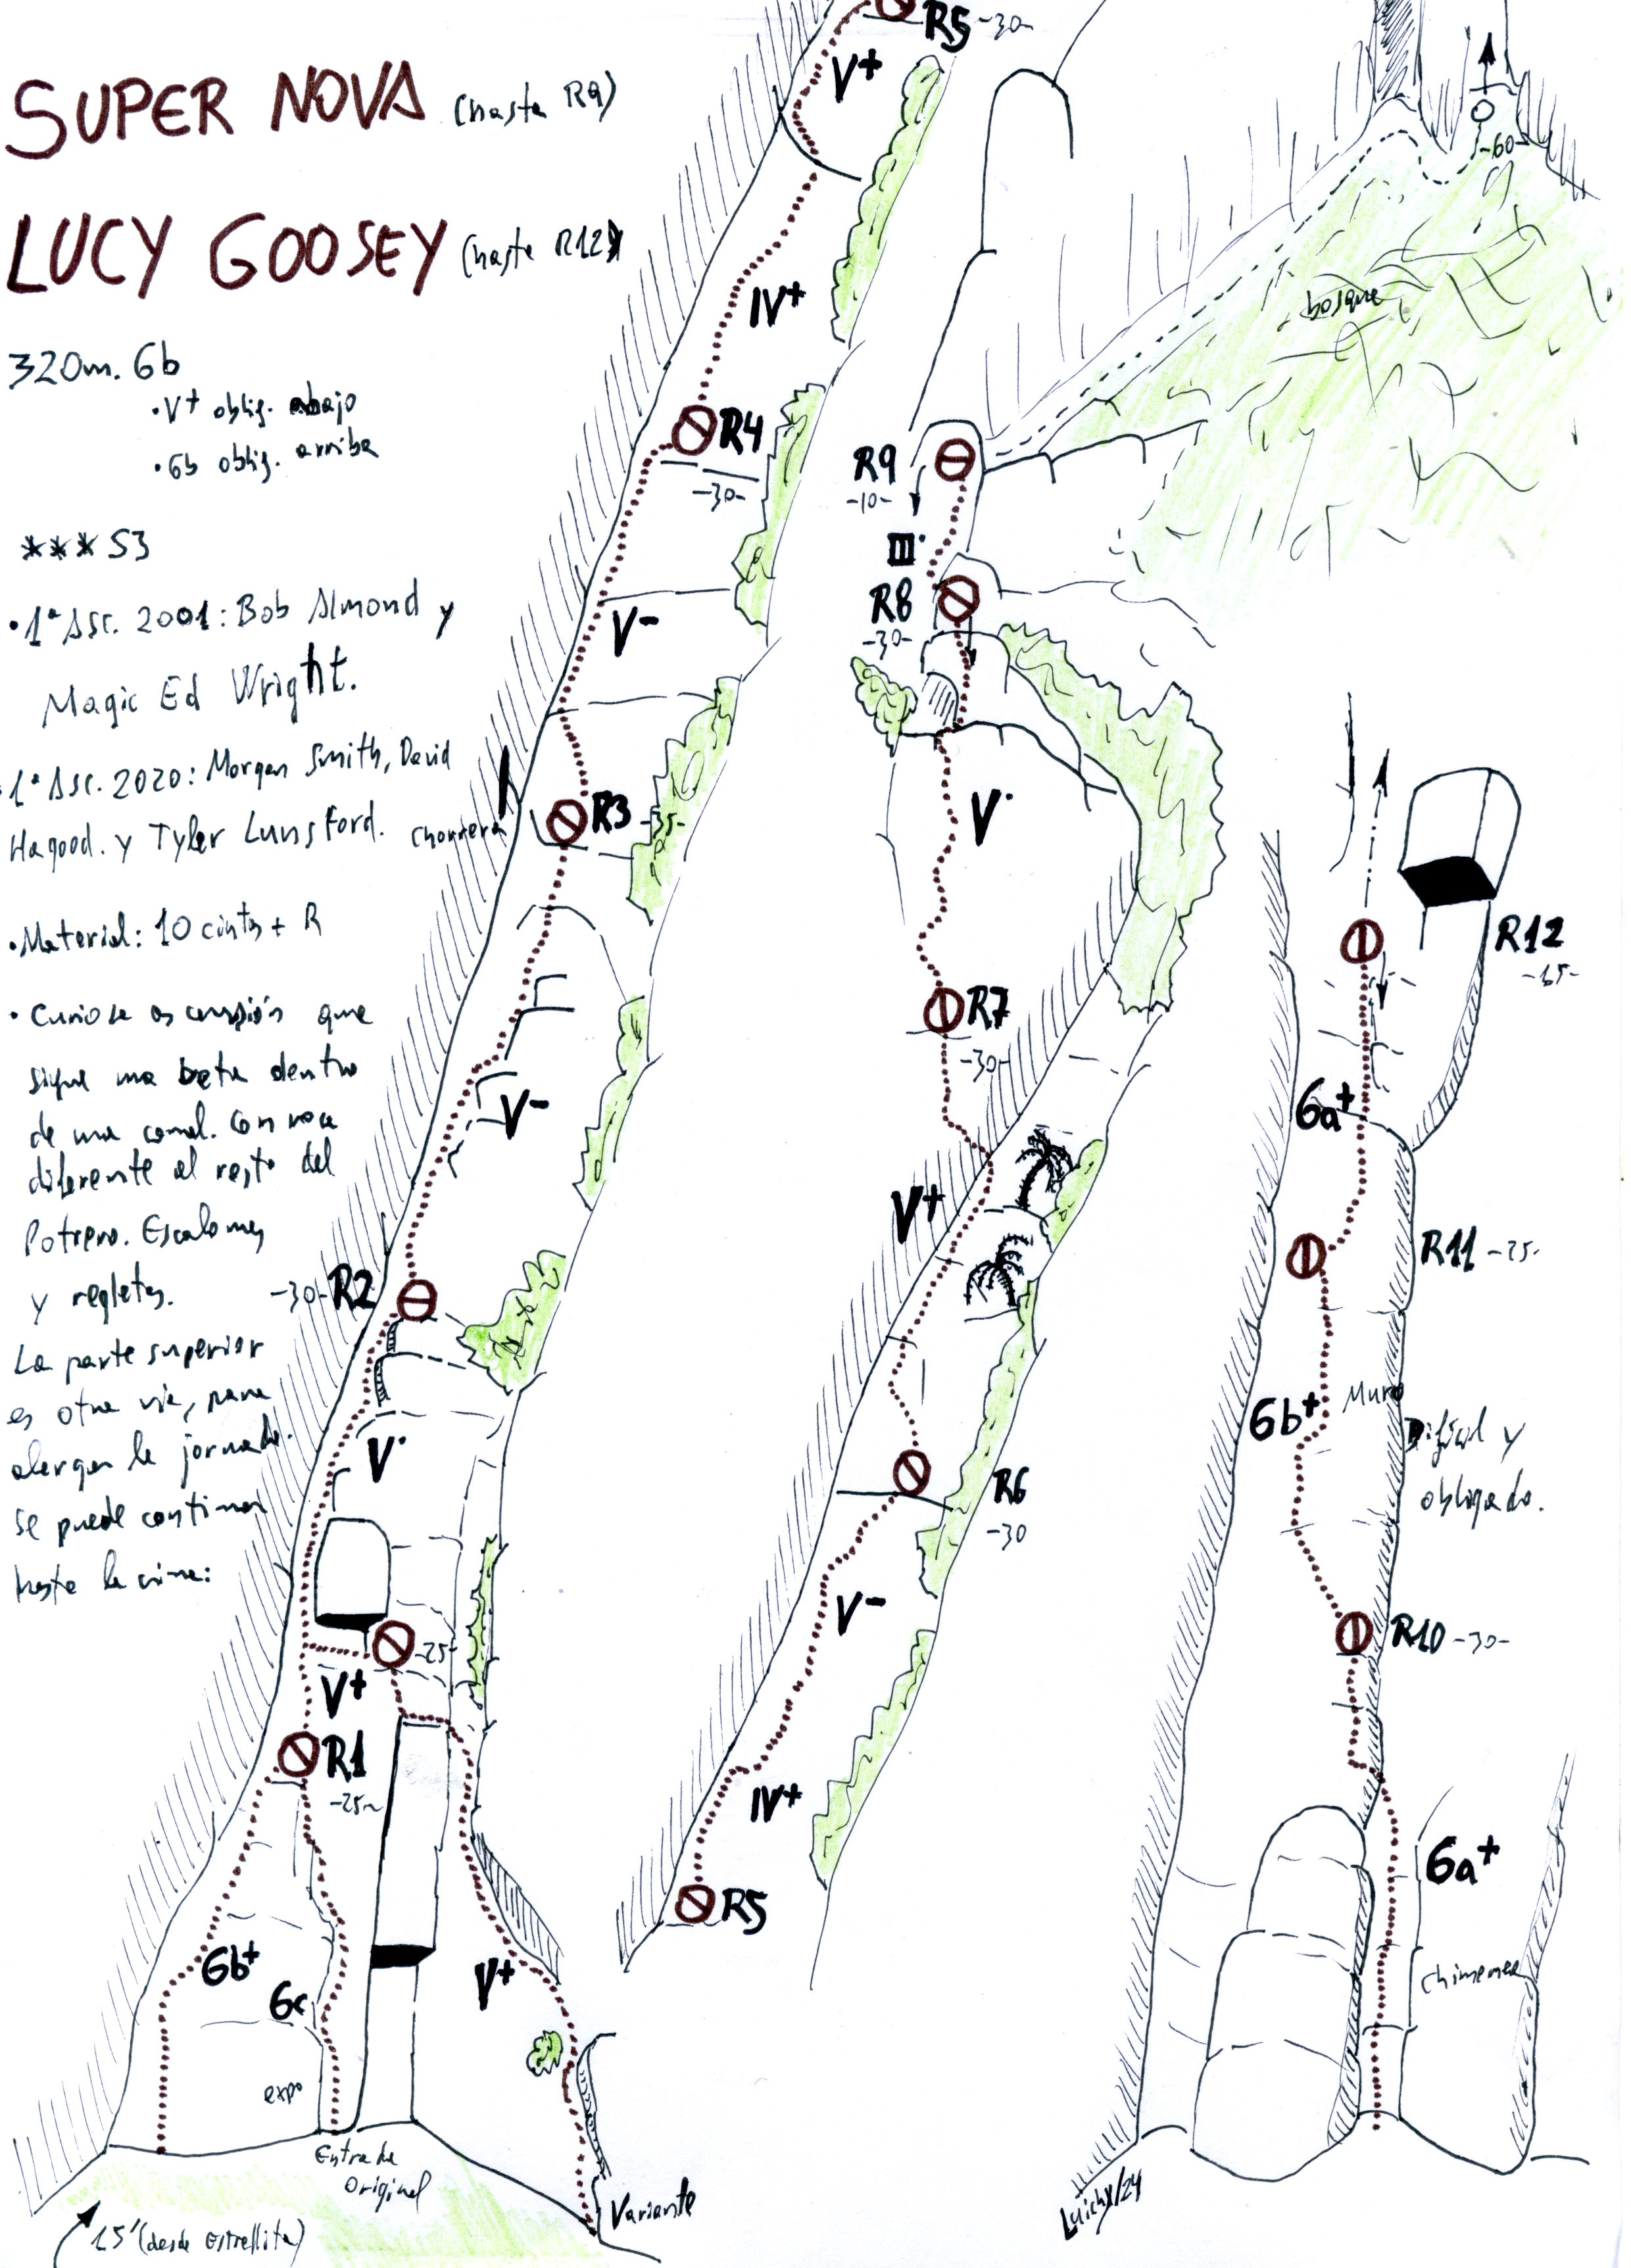 SUPER NOVA (hasta R9)
LUCY GOOSEY (hasta R12)
320m. 6b
• V+ oblig. abajo
• 6b oblig. arriba
*** S3
• 1ª Asc. 2001: Bob Almond y
Magic Ed Wright.
• 1ª Asc. 2020: Morgan Smith, David
Hagood. y Tyler Lunsford.
• Material: 10 cintas + R
• Curiosa ascensión que
sigue una beta dentro
de una canal. Con roca
diferente al resto del
Potrero. Escalones
y regletas.
La parte superior
es otra vía, para
alargar la jornada.
Se puede continuar
hasta la cima:
R5 -30-
V+
IV+
R4
-30-
V-
chorrera
R3 -35-
V-
-30- R2
V·
-25-
V+
R1
-25-
6b+
6c
V+
expo
Entrada
Original
Variante
15' (desde Estrellita)
-60-
bosque
R9
-10-
III·
R8
-30-
V·
R7
-30-
V+
R6
-30
V-
IV+
R5
R12
-15-
6a+
R11 -25-
6b+
Muro
Difícil y
obligado.
R10 -30-
6a+
chimenea
Luichy/24